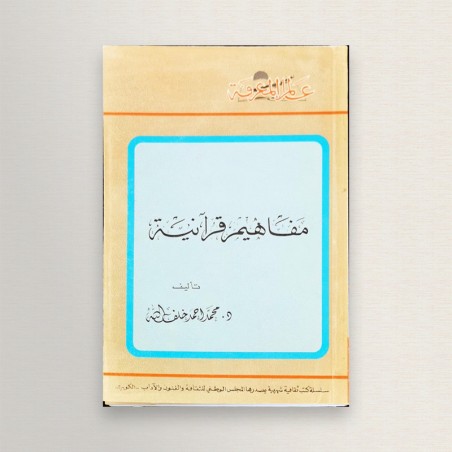 عالم المعرفة
مفاهيم قرآنية
تأليف
د. محمد احمد خلف الله
سلسلة كتب ثقافية شهرية يصدرها المجلس الوطني للثقافة والفنون والآداب - الكويت